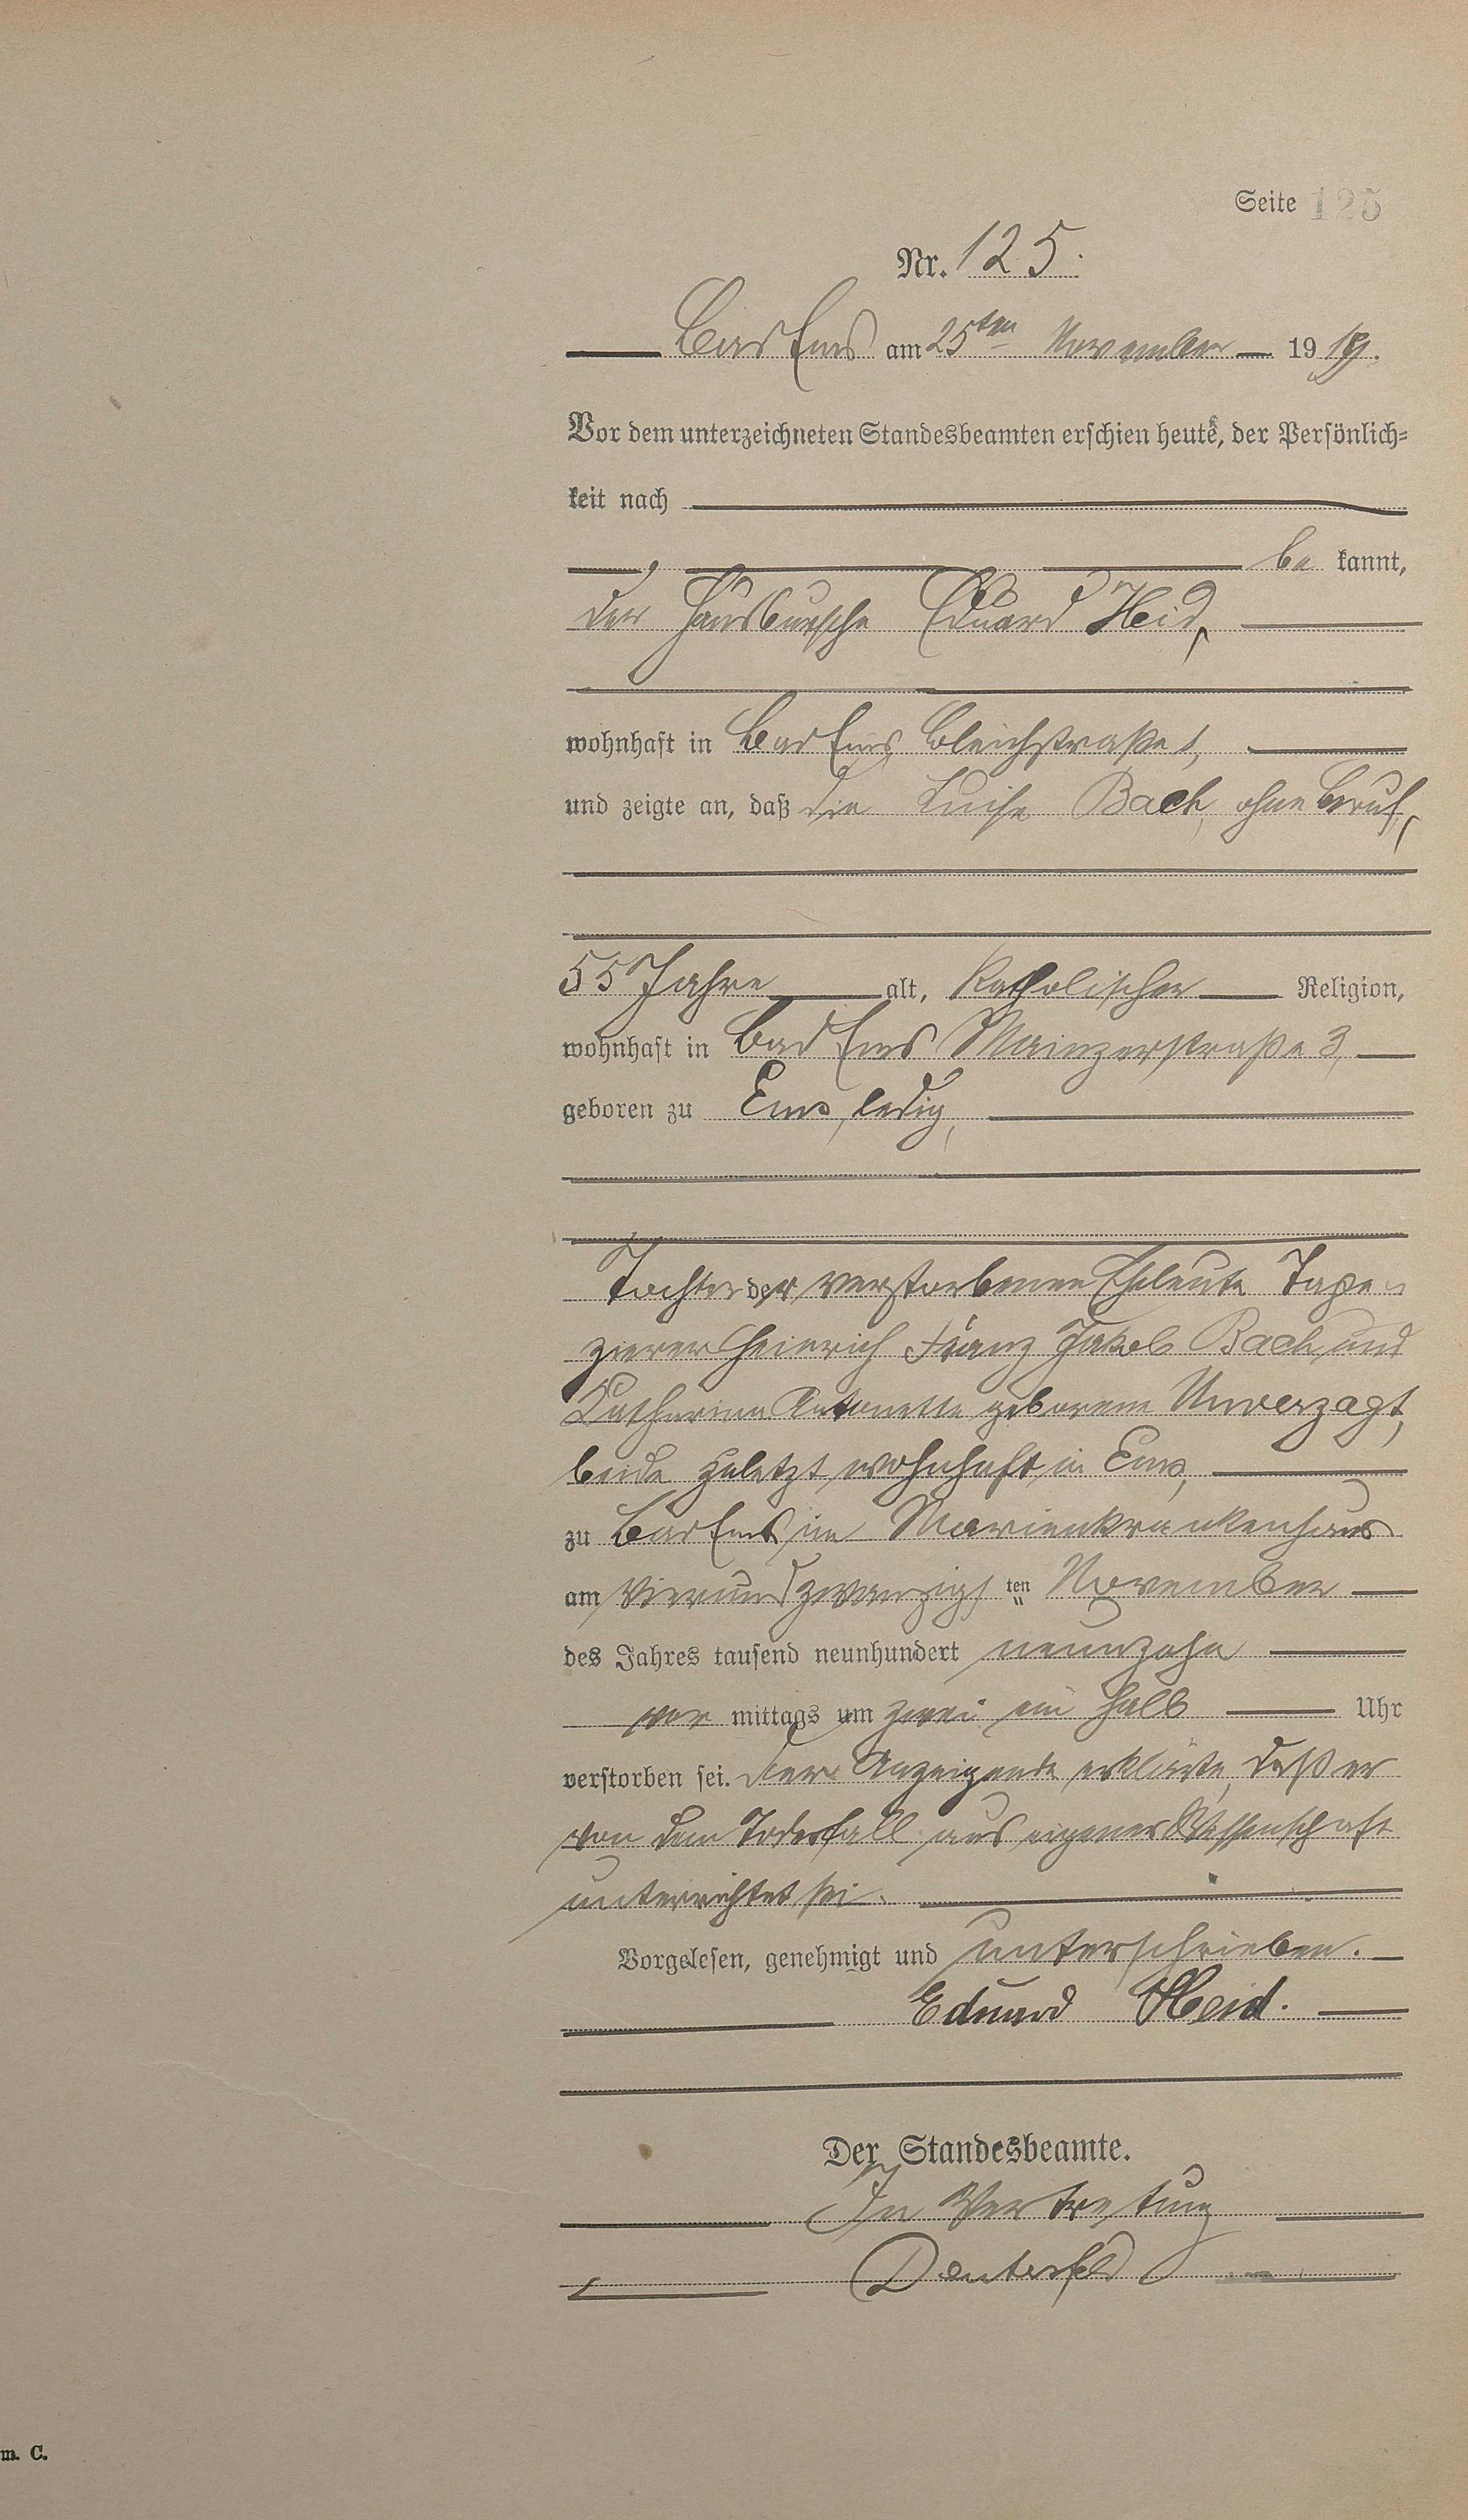 Seite 125
Nr. 125.
Bad Ems am 25ten November 19 19.
Vor dem unterzeichneten Standesbeamten erschien heute, der Persönlich-
keit nach
be kannt,
der Hausbursche Eduard Heid,
wohnhaft in Bad Ems, Bleichstraße 1,
und zeigte an, daß die Luise Bach, ohne Beruf,
55 Jahre alt, katholischer Religion,
wohnhaft in Bad Ems Mainzerstraße 3,
geboren zu Ems, ledig,
Tochter der verstorbenen Eheleute Tape-
zierer Heinrich Franz Jakob Bach und
Katharina Antonette geborene Unverzagt,
beide zuletzt wohnhaft in Ems,
zu Bad Ems im Marienkrankenhaus
am vierundzwanzigsten November
des Jahres tausend neunhundert neunzehn
vor mittags um zwei ein halb Uhr
verstorben sei. Der Anzeigende erklärte, daß er
von dem Todesfall aus eigener Wissenschaft
unterrichtet sei.
Vorgelesen, genehmigt und unterschrieben.
Eduard Heid.
Der Standesbeamte.
In Vertretung
m. C.